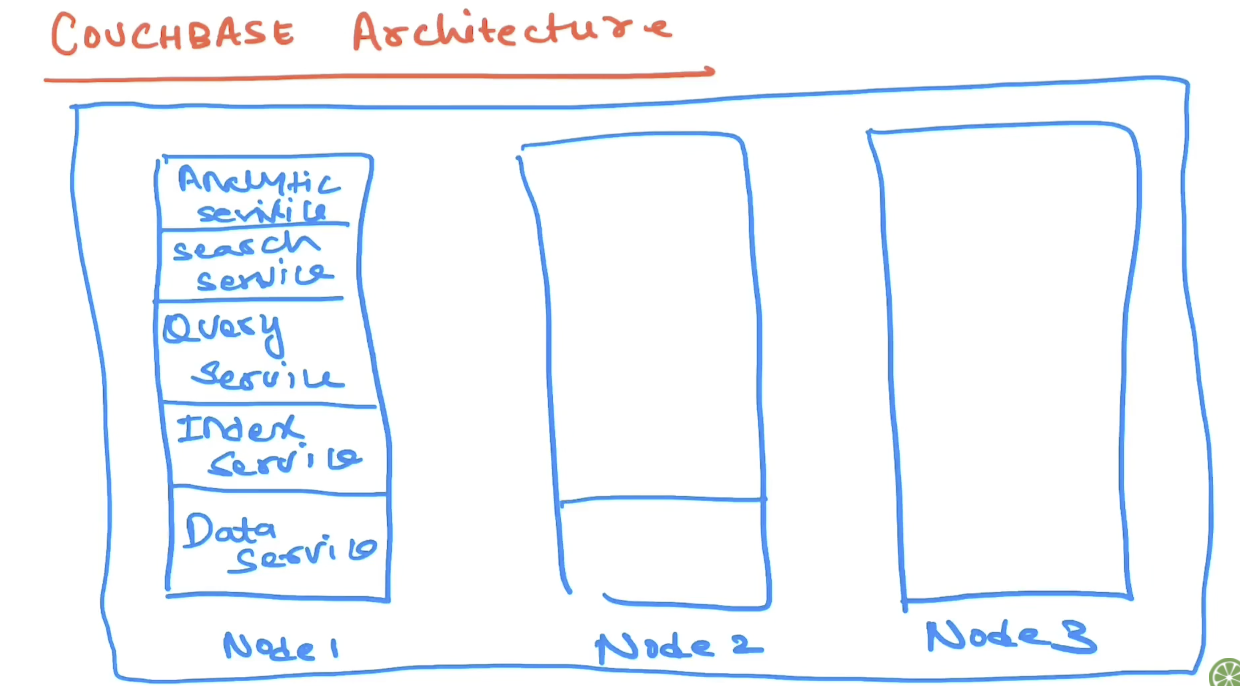 COUCHBASE Architecture
Analytic
service
search
service
Query
service
Index
service
Data
service
Node 1
Node 2
Node 3